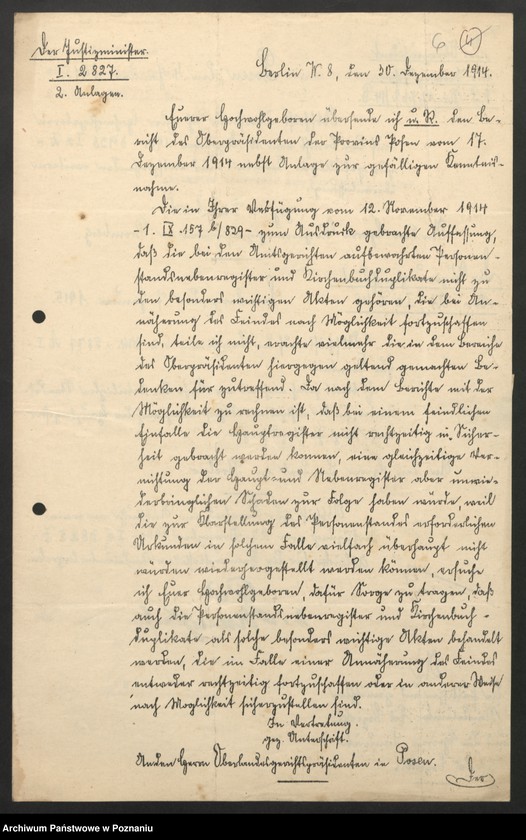 6 4
Der Justizminister.
I. 2827.
2. Anlagen.
Berlin W. 8, den 30. Dezember 1914.
Euerer Hochwohlgeboren übersende ich u. R. den Be-
richt des Oberpräsidenten der Provinz Posen vom 17.
Dezember 1914 nebst Anlage zur gefälligen Kenntnis-
nahme.
Die in Ihrer Verfügung vom 12. November 1914
- 1. IX 157 b/829 - zum Ausdruck gebrachte Auffassung,
daß die bei den Amtsgerichten aufbewahrten Personen-
standsnebenregister und Kirchenbuchduplikate nicht zu
den besonders wichtigen Akten gehören, die bei An-
näherung des Feindes nach Möglichkeit fortzuschaffen
sind, teile ich nicht, erachte vielmehr die in dem Bereiche
des Oberpräsidenten hiergegen geltend gemachten Be-
denken für zutreffend. Da nach dem Berichte mit der
Möglichkeit zu rechnen ist, daß bei einem feindlichen
Einfalle die Hauptregister nicht rechtzeitig in Sicher-
heit gebracht werden können, eine gleichzeitige Ver-
nichtung der Haupt- und Nebenregister aber unwie-
derbringlichen Schaden zur Folge haben würde, weil
die zur Klarstellung des Personenstandes erforderlichen
Urkunden in solchem Falle vielfach überhaupt nicht
würden wiederhergestellt werden können, ersuche
ich Euer Hochwohlgeboren, dafür Sorge zu tragen, daß
auch die Personenstandsnebenregister und Kirchenbuch-
duplikate als solche besonders wichtige Akten behandelt
werden, die im Falle einer Annäherung des Feindes
entweder rechtzeitig fortzuschaffen oder in anderer Weise
nach Möglichkeit sicherzustellen sind.
In Vertretung.
gez. Unterschrift.
An den Herrn Oberlandesgerichtspräsidenten in Posen.
Der
Archiwum Państwowe w Poznaniu